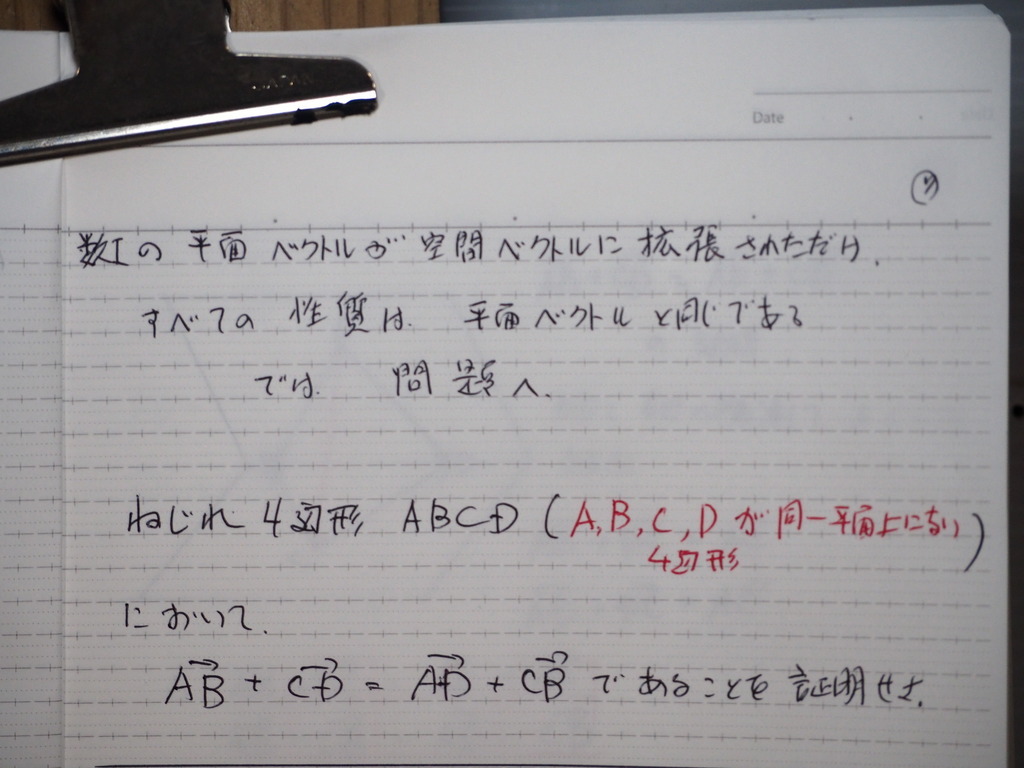 Date
数Iの 平面 ベクトルが 空間ベクトルに 拡張されただけ.
すべての 性質は. 平面ベクトル と同じである
では. 問題へ.
ねじれ 4辺形 ABCD (A,B,C,Dが同一平面上にない
4辺形)
において.
AB + CD = AD + CB であることを 証明せよ.